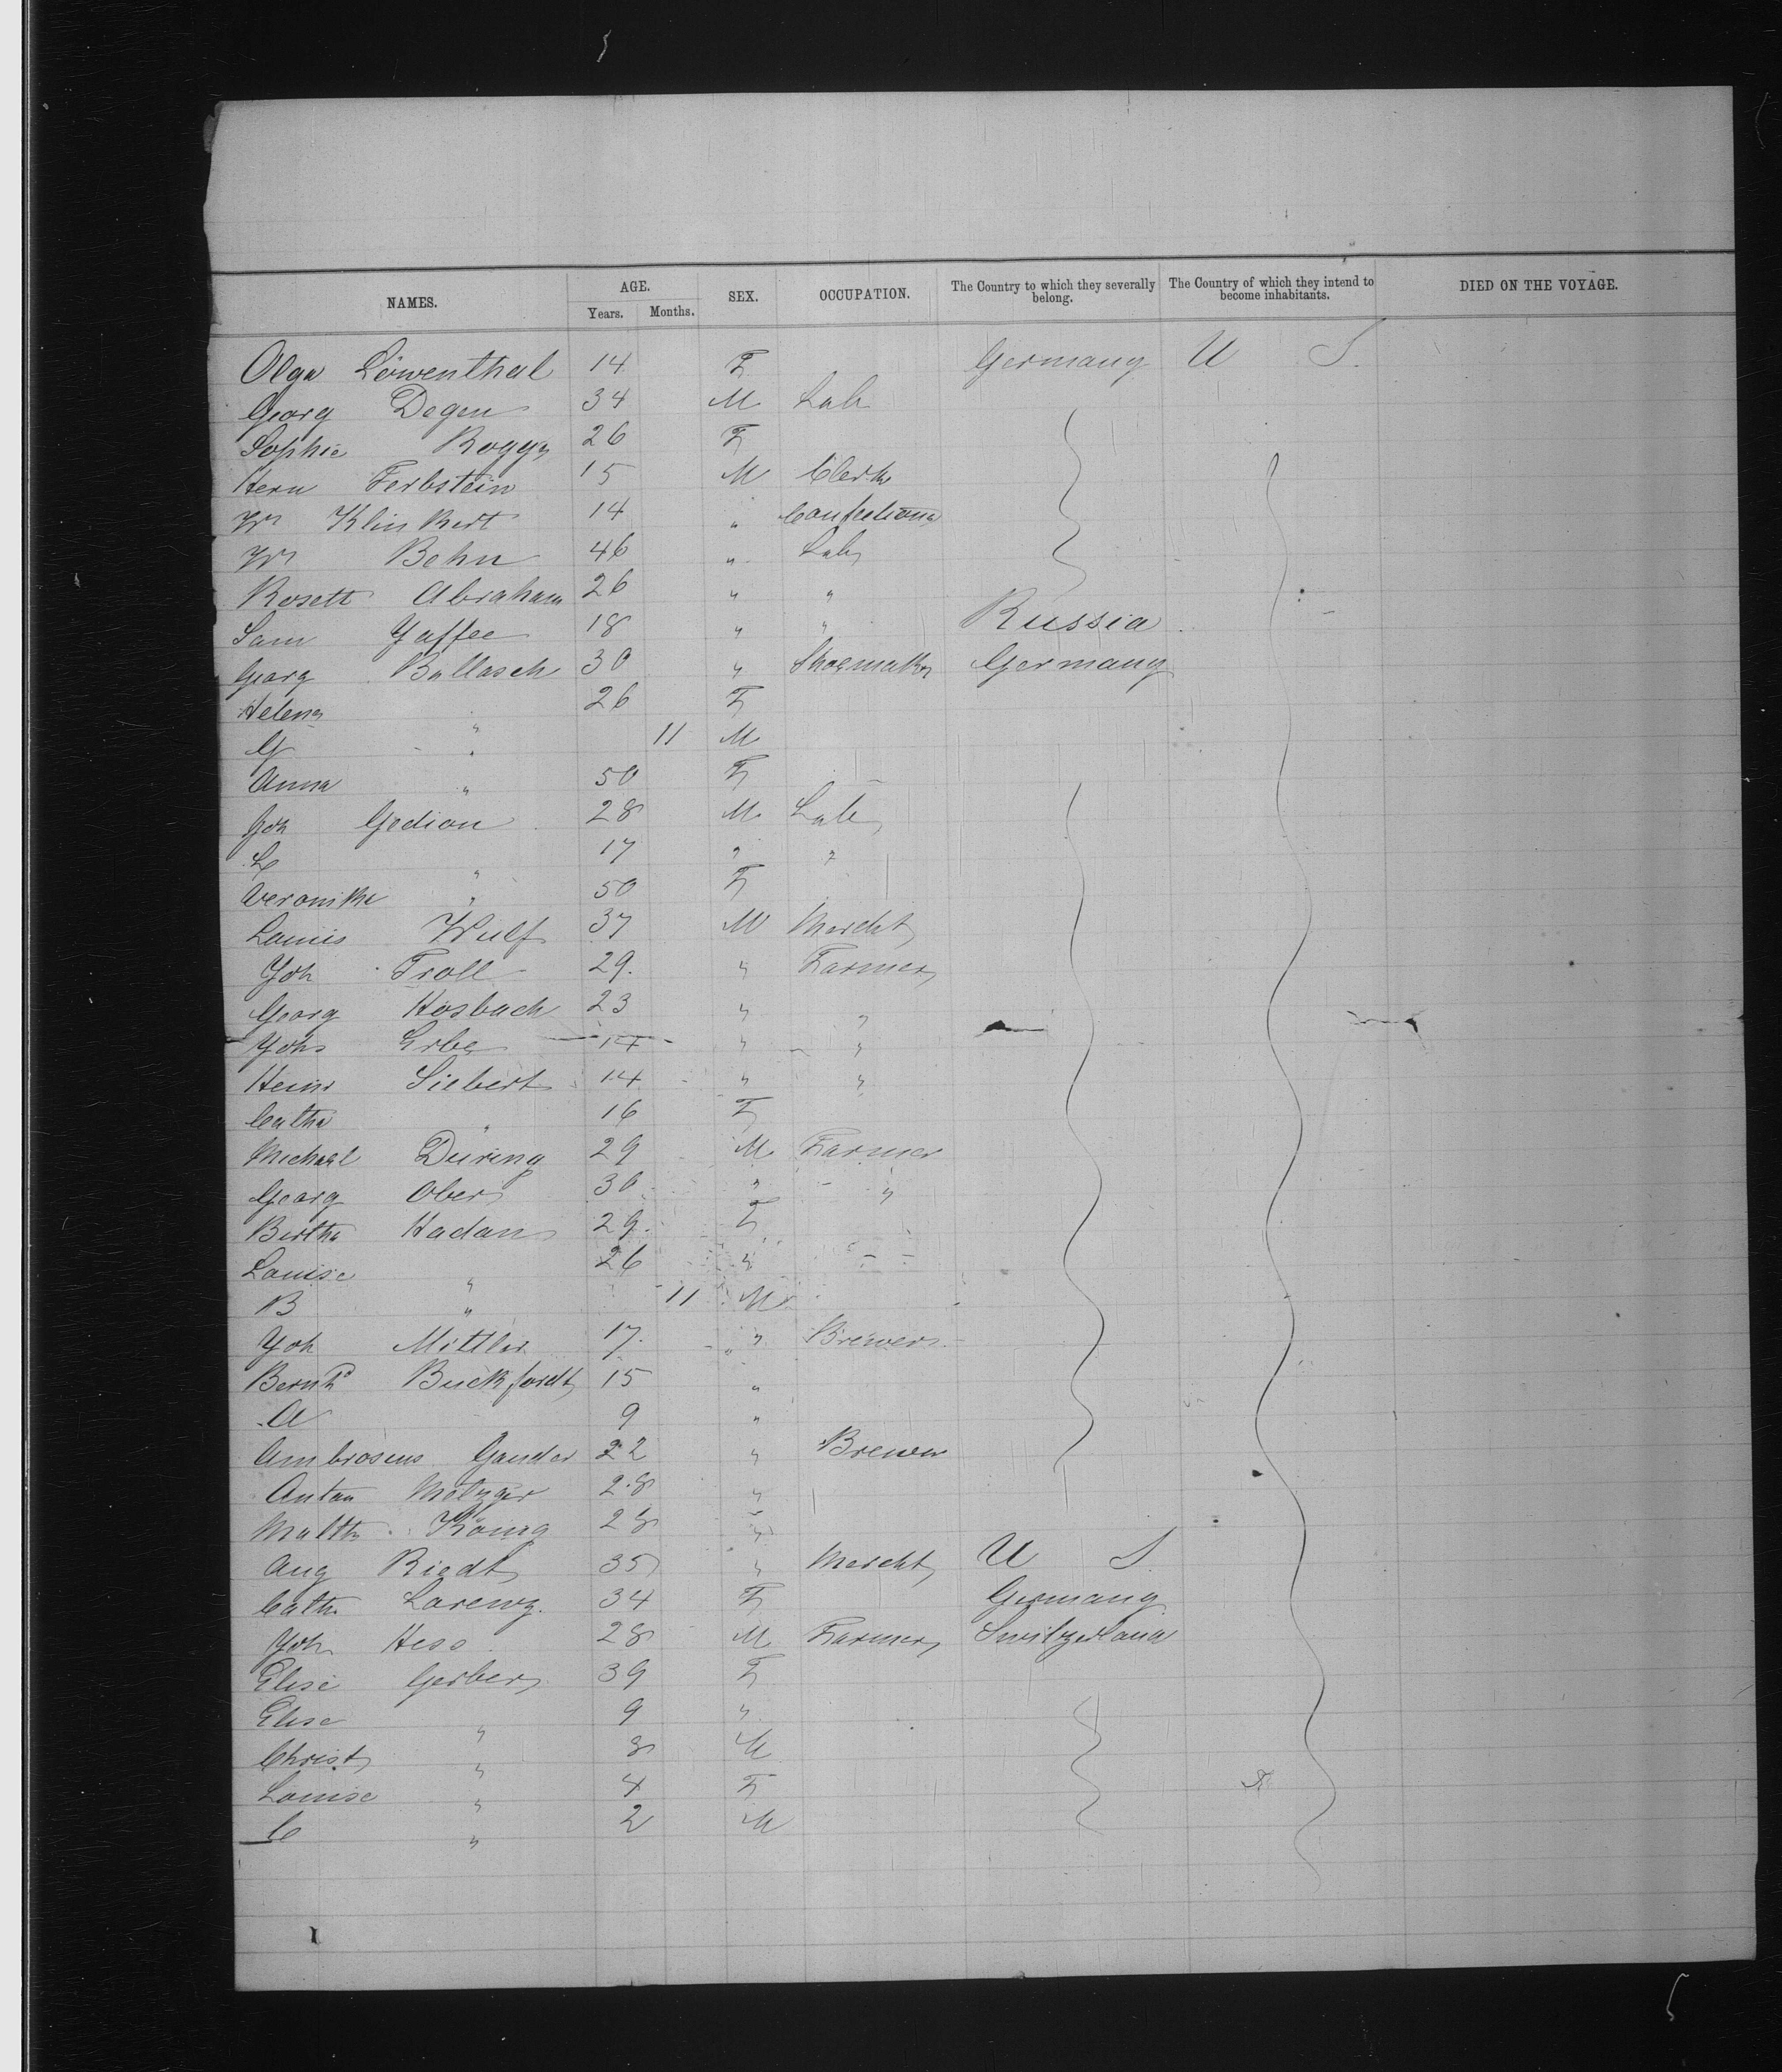 NAMES. AGE. SEX. OCCUPATION. The Country to which they severally belong. The Country of which they intend to become inhabitants. DIED ON THE VOYAGE.
Years. Months.
Olga Löwenthal 14 F Germany U S.
Georg Degen 34 M Lab
Sophie Rogge 26 F
Herm Ferbstein 15 M Clerk
Wm Klinkert 14 " Confectiona
Wm Behn 46 " Lab
Rosett Abraham 26 " "
Sam Yaffee 18 " " Russia
Georg Ballasch 30 " Shoemaker Germany
Helena " 26 F
G " 11 M
Anna " 50 F
Joh Gedion 28 M Lab
L " 17 " "
Veronika " 50 F
Louis Wulf 37 M Mercht
Joh Troll 29. " Farmer
Georg Hosbach 23 " "
Johs Erbe 14 " "
Heinr Siebert 14 " "
Catha " 16 F
Michael Düring 29 M Farmer
Georg Ober 30 " "
Bertha Hadan 29. F
Louise " 26 "
B " 11 M
Joh Mittler 17. " Brewer
Bernhd Buckfordt 15 "
A 9 "
Ambrosius Gander 22 " Brewer
Anton Metzger 28 "
Matth König 28 "
Aug Riedt 35 " Mercht U S
Cath Lorenz. 34 F Germany
Joh Hess 28 M Farmer Switzerland
Elise Gerber 39 F
Elise " 9 "
Christ " 8 M
Louise " 4 F
C " 2 M
5